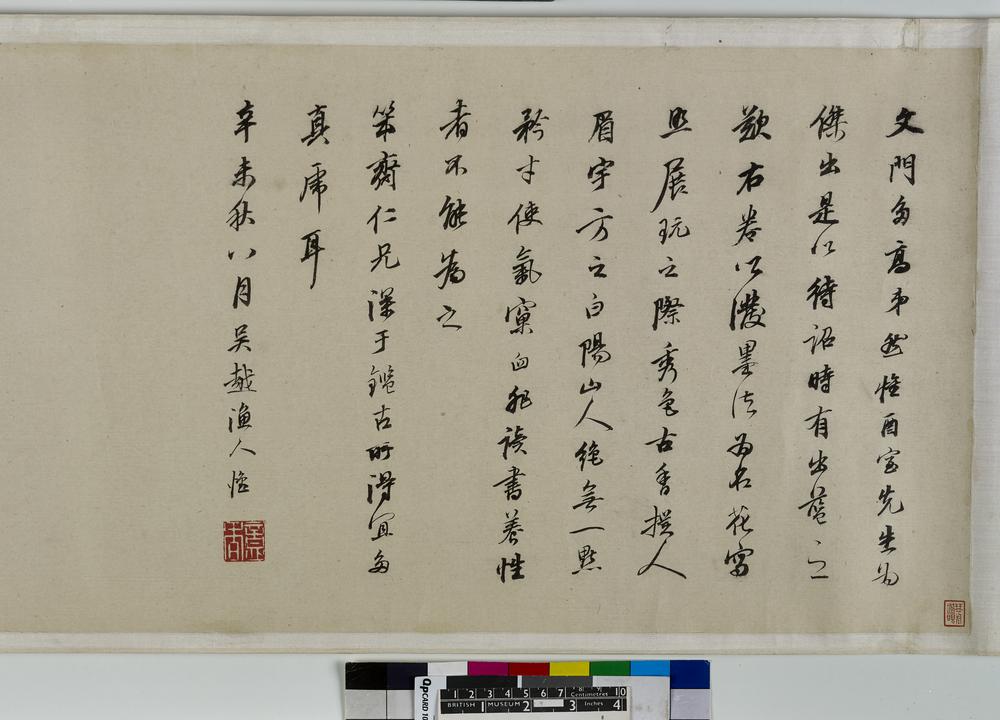 文門多高弟然惟酉室先生為
傑出是以待詔時有出藍之
歎右卷以潑墨法為名花寫
照展玩之際秀色古香撲人
眉宇方之白陽山人絶無一點
矜才使氣窠臼非讀書養性
者不能為之
笨齋仁兄深于鑑古所得宜多
真虎耳
辛未秋八月吳越漁人
QPCARD 10
1 2 3 4 5 6 7 8 9 10
Centimetres
BRITISH MUSEUM
1 2 3 4
Inches